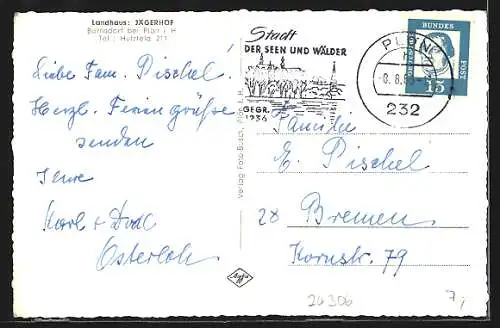 Landhaus: JÄGERHOF
Bornsdorf bei Plön i. H
Tel.: Hutzfeld 211
Liebe Fam. Pischel!
Herzl. Feriengrüße
senden
Ihre
Karl +
Osterloh
Verlag Foto-Busch, Plön i. H.
Stadt
DER SEEN UND WÄLDER
GEGR.
1236
PLÖN
232
DEUTSCHE
BUNDES
POST
15
Familie
E. Pischel
28 Bremen
Kornstr. 79
Agfa
20306
7,